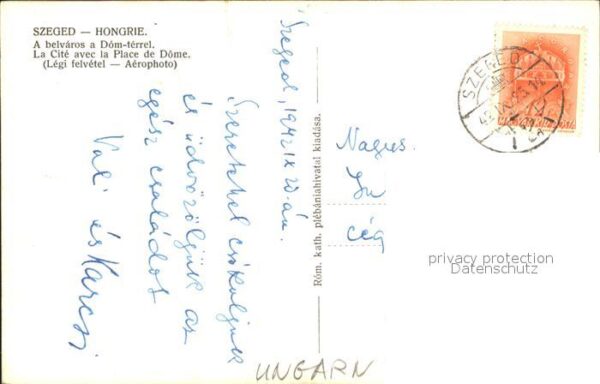 SZEGED — HONGRIE.
A belváros a Dóm-térrel.
La Cité avec la Place de Dôme.
(Légi felvétel — Aérophoto)
Szeged, 1942 IX 20-án.
Szeretettel csókoljuk
és üdvözöljük az
egész családot
Vali és Karcsi
Róm. kath. plébániahivatal kiadása.
Nagys.
cég
SZEGED
privacy protection
Datenschutz
UNGARN